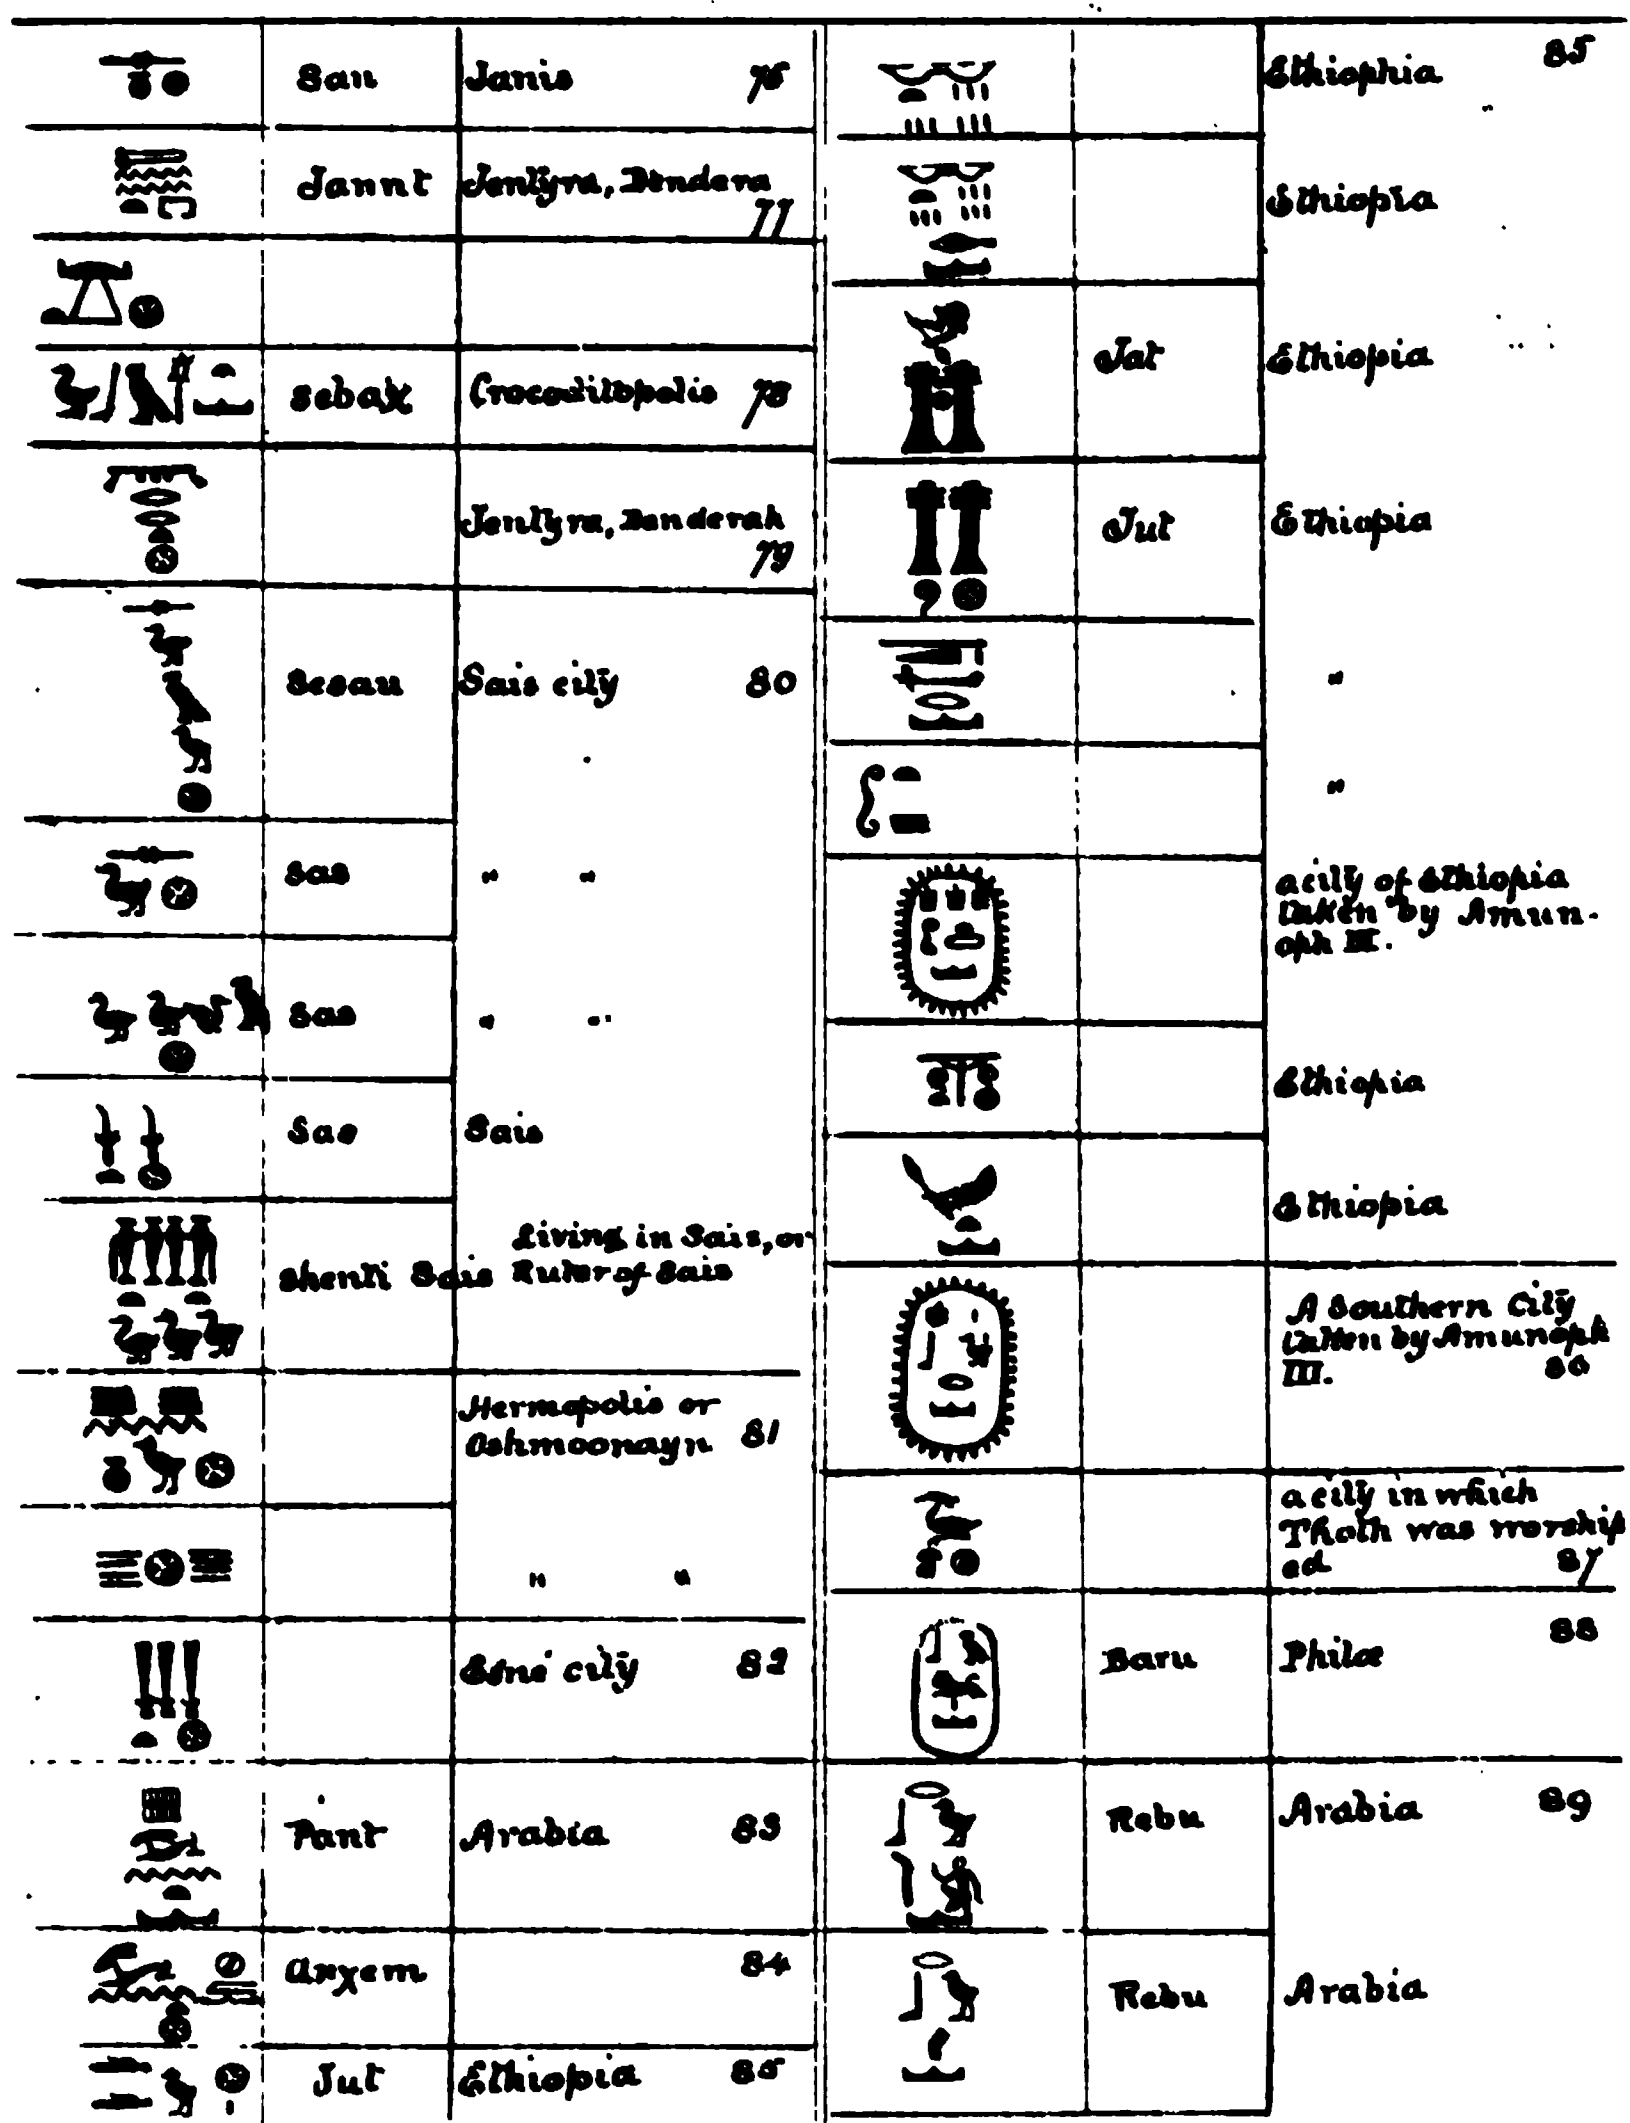 San Janis 76
Jannt Jentyra, Dendera
77
Sebak Crocodilopolis 78
Jentyra, Denderah
79
Sesau Sais city 80
Sas " "
Sas " "
Sas Sais
Living in Sais, or
Shenti Sais Ruler of Sais
Hermopolis or
Oshmoonayn 81
" "
Esne city 82
Pant Arabia 83
Anχem 84
Jut Ethiopia 85
Ethiophia 85
Ethiopia
Jat Ethiopia
Jut Ethiopia
"
"
a city of Ethiopia
taken by Amun-
oph III.
Ethiopia
Ethiopia
A Southern City
taken by Amunoph
III. 86
a city in which
Thoth was worship
ed 87
Baru Philæ 88
Rebu Arabia 89
Rebu Arabia